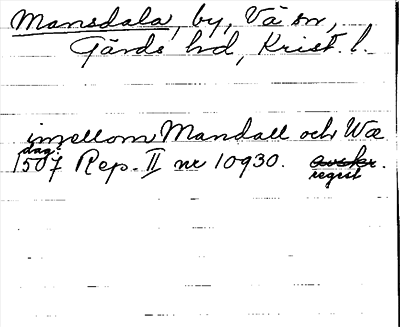 Mansdala, by, Vä sn,
Gärds hd, Krist. l.
imellom Mandall och Wæ
dag.
1507 Rep. II nr 10930. avskr.
regest